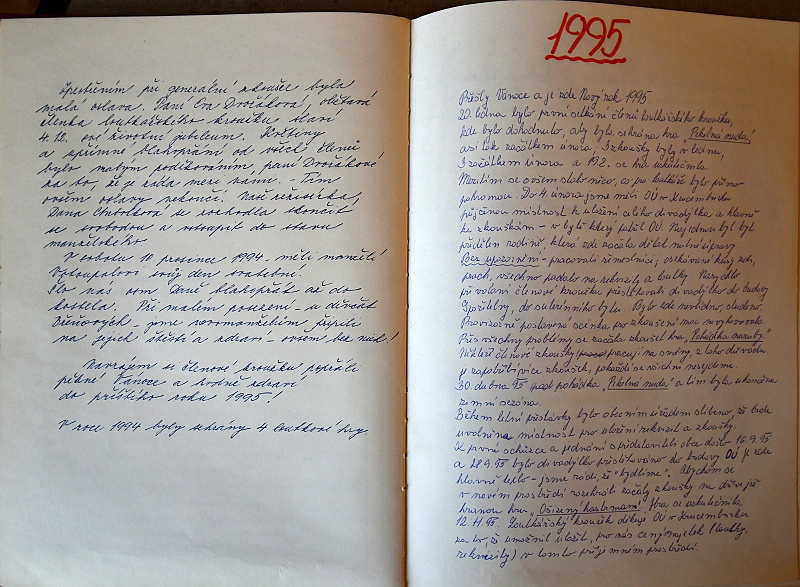 Zpestřením při generální zkoušce byla
malá oslava. Paní Eva Dvořáková, obětavá
členka loutkařského kroužku slaví
4.12. své životní jubileum. Květiny
a upřímné blahopřání od všech členů
bylo malým poděkováním, paní Dvořákové
za to, že je ráda mezi námi. Tím
ovšem oslavy nekončí. Naše režisérka,
Dana se rozhodla skončit
se svobodou a vstoupit do stavu
manželského.
V sobotu 10 prosince 1994 měli manželé
svůj den svatební.
Šlo nás osm Daně blahopřát až do
kostela. Při malém posezení – u děvčat
– jsme novomanželům připili
na jejich štěstí a zdraví – ovšem bez nich!
Navzájem si členové kroužku popřáli
pěkné Vánoce a hodně zdraví
do příštího roku 1995!
V roce 1994 byly sehrány 4 loutkové hry.
1995
Přešly Vánoce a je zde Nový rok 1995.
20. ledna bylo první setkání členů loutkářského kroužku,
kde bylo dohodnuto, aby byla sehrána hra "Pekelná nuda",
asi tak začátkem února. Zkoušky byly v lednu,
i začátkem února a 19.2. se hra uskutečnila.
Mezitím se ovšem stalo něco, co pro loutkáře bylo přímo
pohromou. Do 4. února jsme měli OÚ v Chucembusku
půjčenou místnost k uložení celého divadýlka a hlavně
ke zkouškám – v bytě který patřil OÚ. Najednou byl byt
přidělen rodině, která zde začala dělat nutné úpravy.
Bez upozornění – pracovali řemeslníci, osekávali kusy zdi,
prach, všechno padalo na rekvizity a loutky. Narychlo
přivolaní členové kroužku přestěhovali divadýlko do budovy
spořitelny, do suterénního bytu. Bylo zde nevhodno, chladno.
Provizorně postavená scénka pro zkoušení moc nevyhovovala.
Přes všechny problémy se začala zkoušet hra, "Pohádka naruby".
Někteří členové pracují na směny, z toho důvodu
je zapotřebí více zkoušek, pokaždé se všichni nesejdeme.
30. dubna 95 pohádka "Pekelná nuda" a tím byla ukončena
zimní sezóna.
Během letní přestávky bylo obecním úřadem slíbeno, že bude
uvolněna místnost pro uložení rekvizit a zkoušky.
K první schůzce a jednání s představiteli obce došlo 16.9.95
a 28.9.95 bylo divadýlko přestěhováno do budovy OÚ je zde
hlavně teplo – jsme rádi, že "bydlíme". Abychom se
v novém prostředí rozehráli začaly zkoušky na dříve již
hranou hru "Ošizený hastrman!" Hra se uskutečnila
12.11.95. Loutkářský kroužek děkuje OÚ v Chucembusku
za to, že umožnil uložit, pro nás cenný majetek (loutky,
rekvizity) v tomto příjemném prostředí.